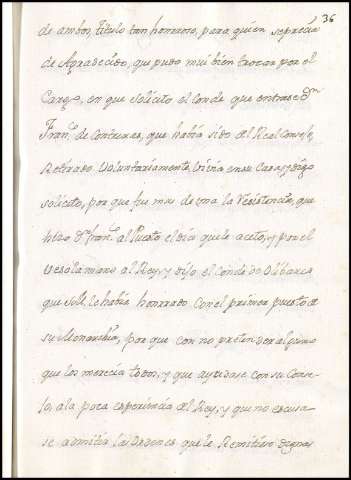 36
de ambos, titulo tan honroso, para quien se precia
de Agradecido, que pudo mui bien trocar por el
Cargo, en que solicito el Conde que entrase Dn
Franco. de Contreras, que habia sido del Real Consejo,
Retirado Voluntariamente, Vivia en su Casa, y digo
solicito, por que fue mas de una la resistencia, que
hizo Dn. Franco. al Puesto el dia que le aceto, y por el
Veso la mano al Rey, y dijo el Conde de Olibares
que solo lo habia honrrado Con el primer puesto de
su Monarchia, por que con no pretender alguno
que los merecia todos, y que ayudase con su Conse-
jo, a la poca esperiencia del Rey, y que no escusa-
se admitir las Ordenes que le Remitiera dignas